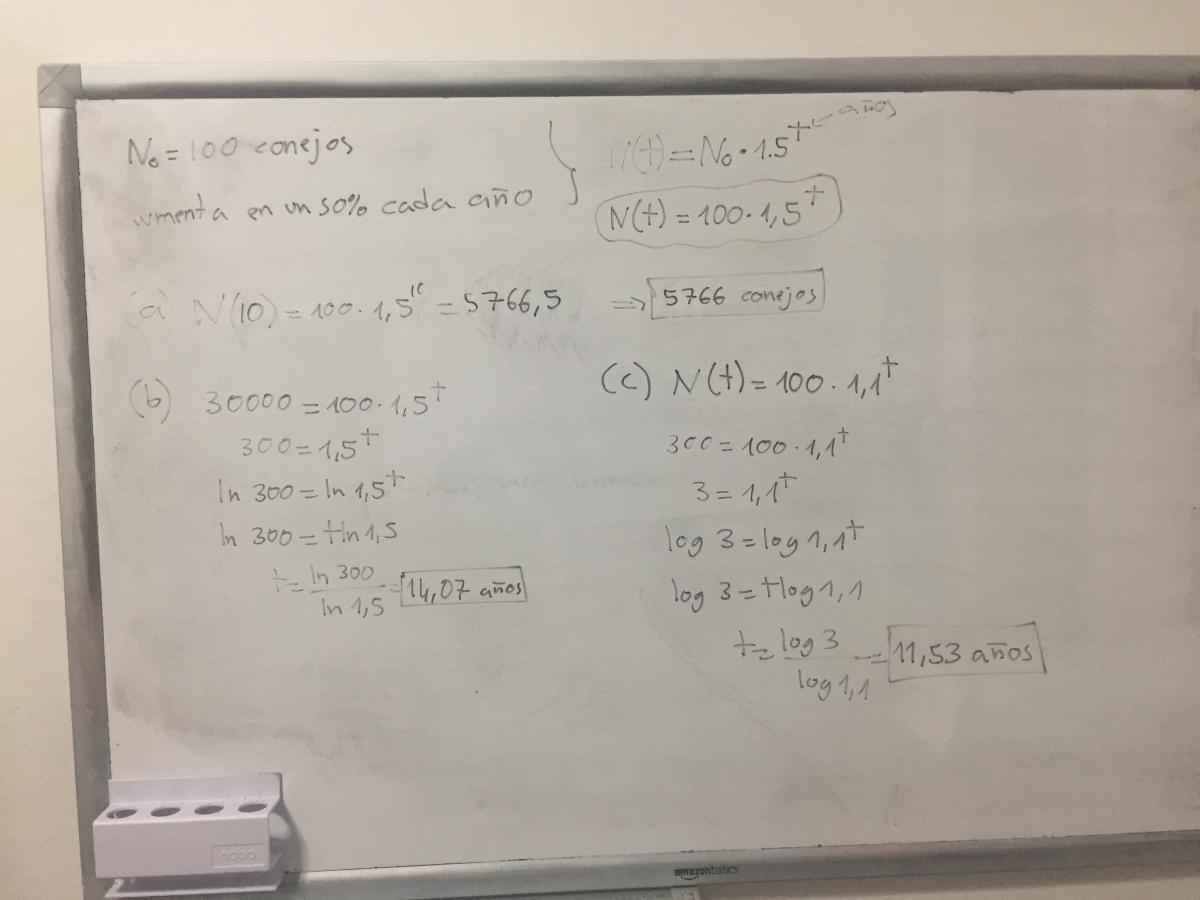 N₀ = 100 conejos
umenta en un 50% cada año
N(t) = N₀ · 1.5^t ← años
N(t) = 100 · 1,5^t
(a) N(10) = 100 · 1,5^10 = 5766,5 ⇒ 5766 conejos
(b) 30000 = 100 · 1,5^t
300 = 1,5^t
ln 300 = ln 1,5^t
ln 300 = t ln 1,5
t = ln 300 / ln 1,5 = 14,07 años
(c) N(t) = 100 · 1,1^t
300 = 100 · 1,1^t
3 = 1,1^t
log 3 = log 1,1^t
log 3 = t log 1,1
t = log 3 / log 1,1 = 11,53 años
nobo
amazonbasics